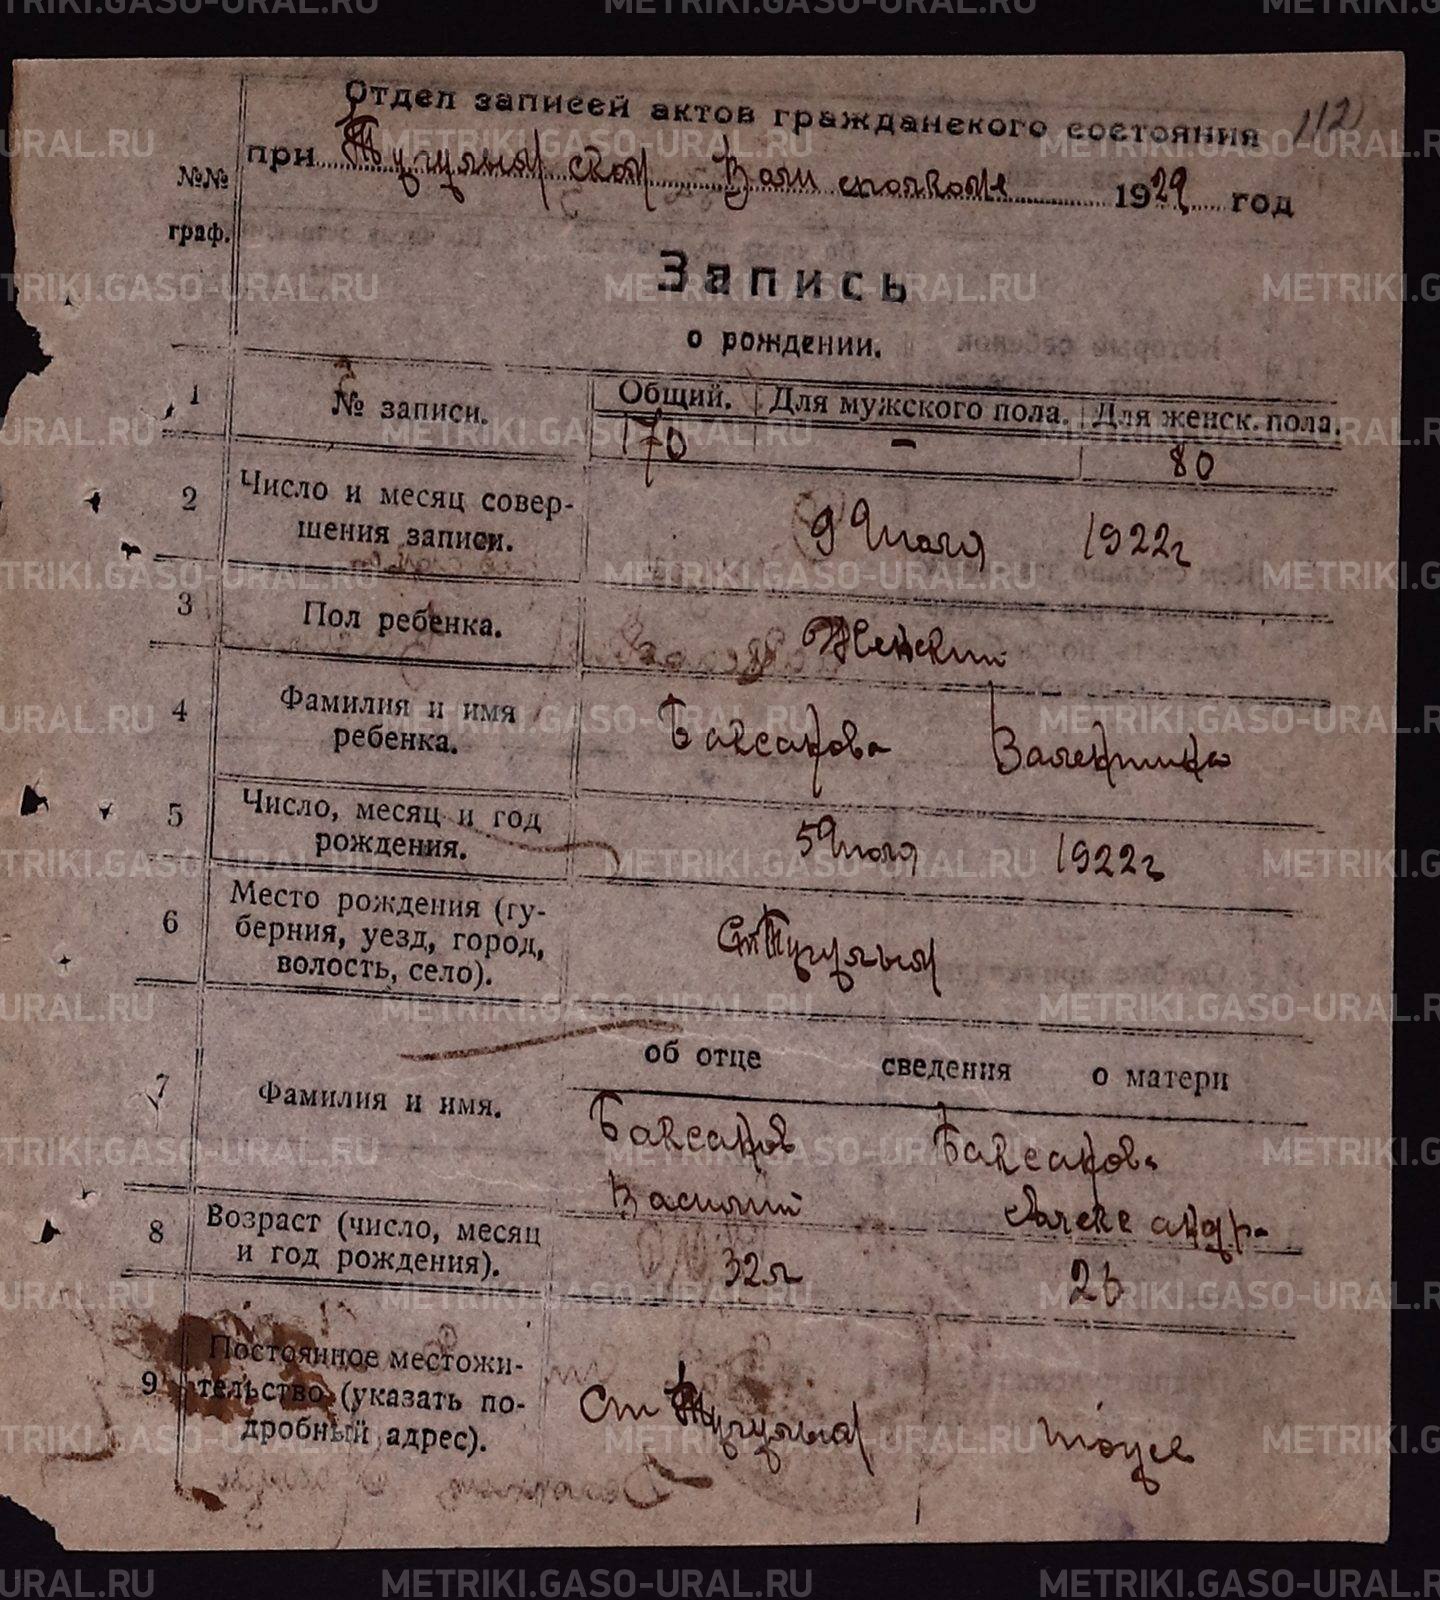 112
Отдел записей актов гражданского состояния
при Тугулымской Вол исполкоме 1922 год
№№ граф.
Запись
о рождении.
1 № записи. Общий. Для мужского пола. Для женск. пола.
170 - 80
2 Число и месяц совершения записи. 9 Июля 1922 г
3 Пол ребенка. Женский
4 Фамилия и имя ребенка. Баксанова Валентина
5 Число, месяц и год рождения. 5 Июля 1922 г
6 Место рождения (губерния, уезд, город, волость, село). Ст Тугулым
об отце сведения о матери
7 Фамилия и имя. Баксанов Баксанова
Василий Александра
8 Возраст (число, месяц и год рождения). 32 л 26
9 Постоянное местожительство (указать подробный адрес). Ст Тугулым тоже
METRIKI.GASO-URAL.RU